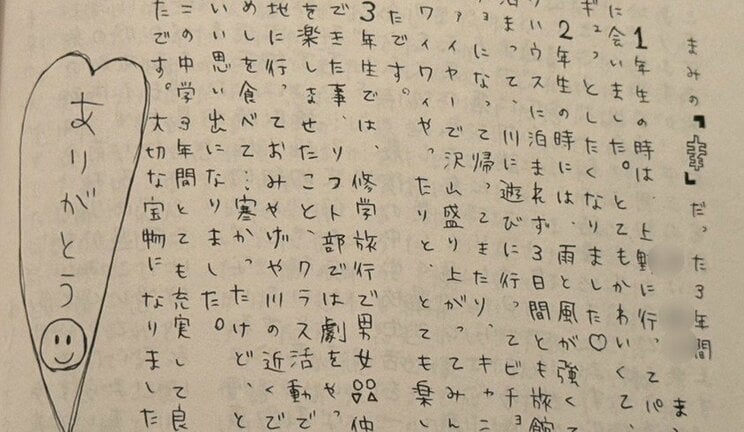 まみの『幸』だった3年間 ま
1年生の時は、上野に行ってパ
に会いました。とてもかわいくて、
ギュっとしたくなりました♡
2年生の時には、雨と風が強くて
リハウスに泊まれず3日間とも旅館
泊まって、川に遊びに行ってビチョ
ョになって帰ってきたり、キャン
ァイヤーで沢山盛り上がってみん
ワイワイやったりと、とても楽し
たです。
3年生では、修学旅行で男女
できた事、ソフト部では劇をやっ
を楽しませたこと、クラス活動で
地に行っておみやげや川の近くで
めしを食べて…寒かったけど、と
いい思い出になりました。
この中学3年間とても充実して良
たです。大切な宝物になりました
ありがとう